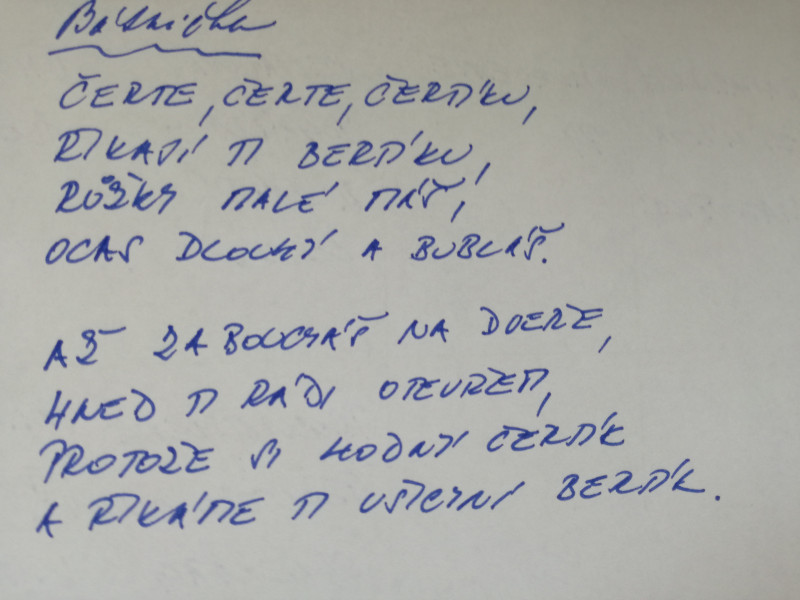 Básnička
ČERTE, ČERTE, ČERTÍKU,
ŘÍKAJÍ TI BERTÍKU,
RŮŽKY MALÉ MÁŠ,
OCAS DLOUHÝ A BUBLÁŠ.
AŽ ZABOUCHÁŠ NA DVEŘE,
HNED TI RÁDI OTEVŘEM,
PROTOŽE SI HODNÝ ČERTÍK
A ŘÍKÁME TI VŠICHNI BERTÍK.